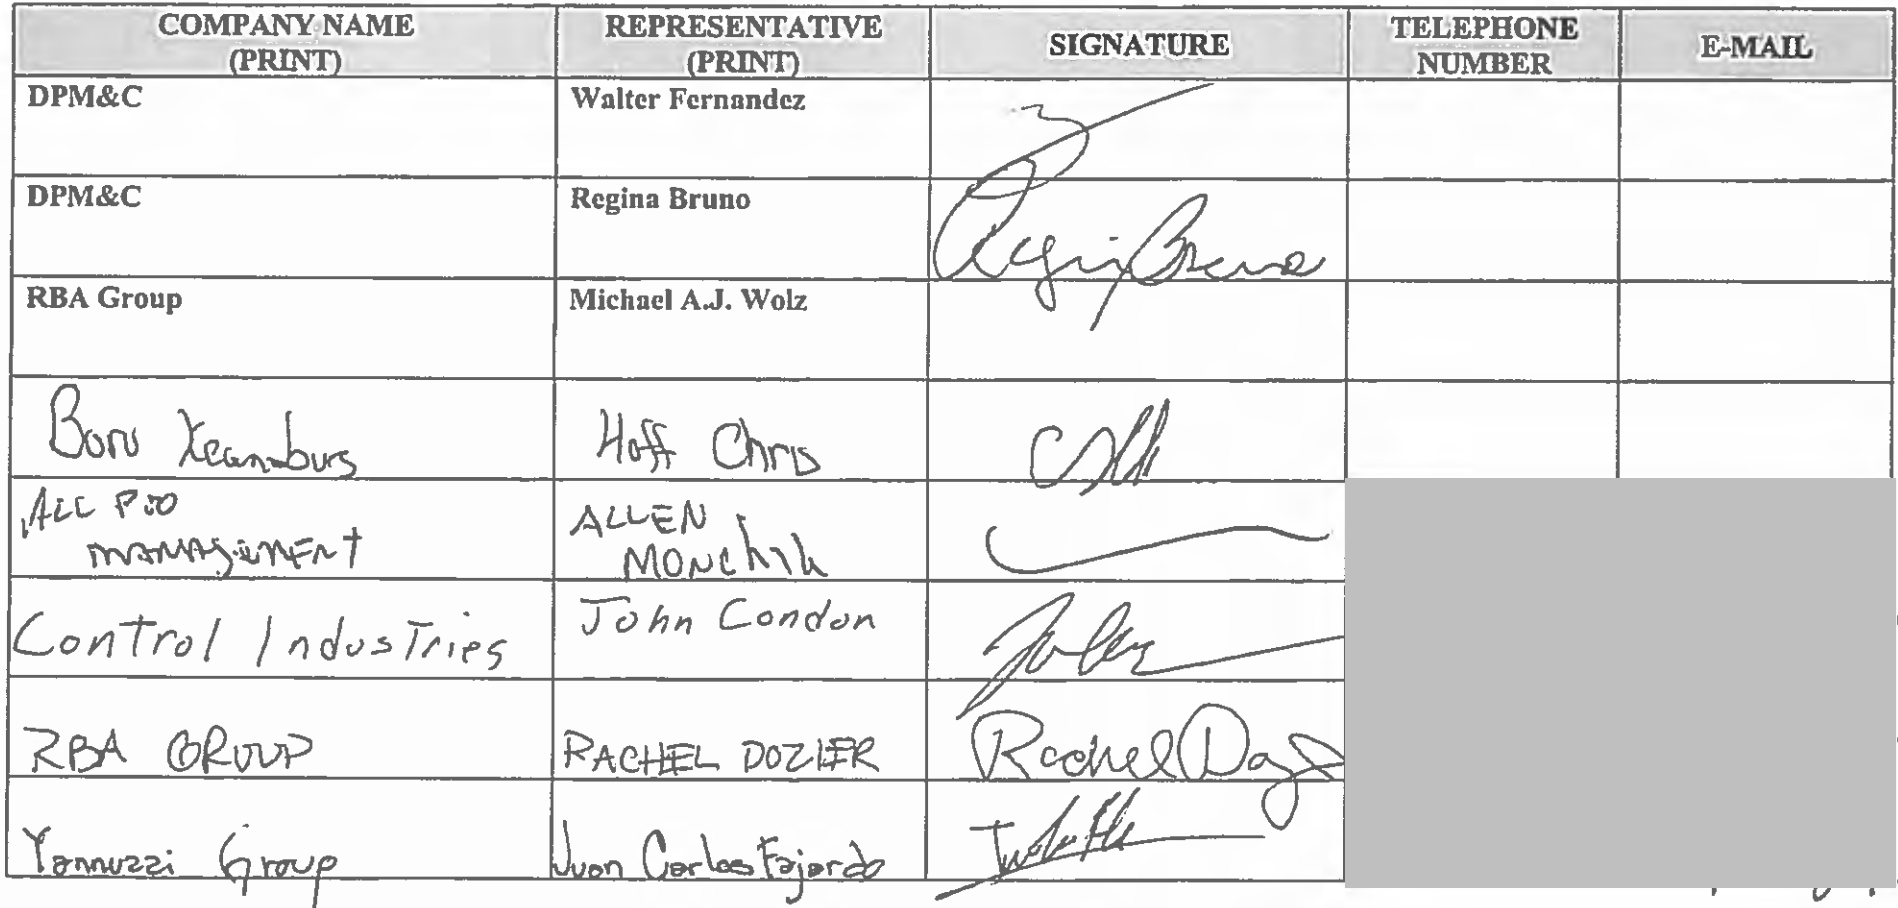 COMPANY NAME (PRINT) REPRESENTATIVE (PRINT) SIGNATURE TELEPHONE NUMBER E-MAIL
DPM&C Walter Fernandez
DPM&C Regina Bruno Regina Bruno
RBA Group Michael A.J. Wolz
Boro Keansburg Hoff Chris
ALL PRO MANAGEMENT ALLEN MONCHIK
Control Industries John Condon
RBA GROUP RACHEL DOZIER Rachel Doz
Yannuzzi Group Juan Carlos Fajardo